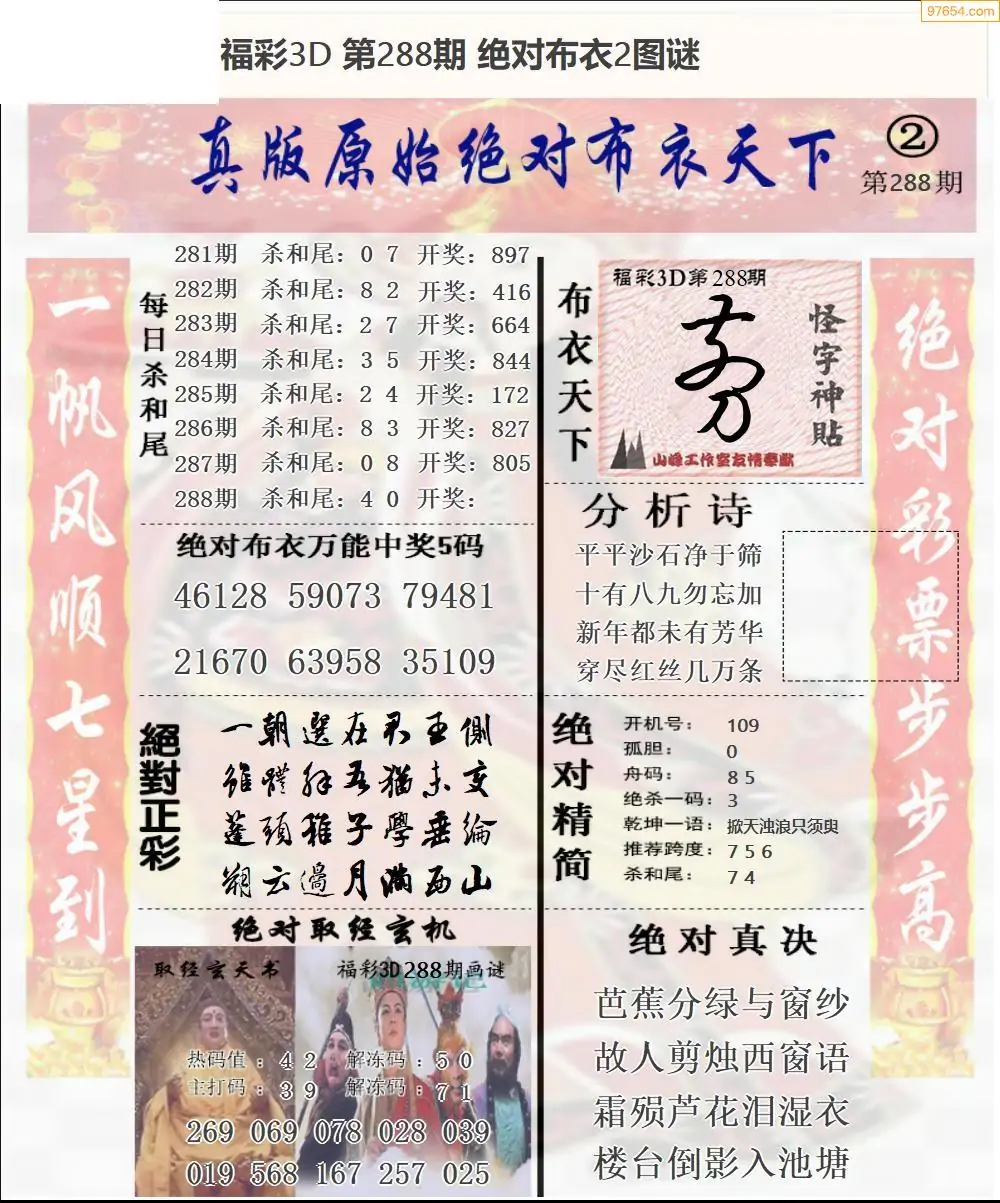 97654.com
福彩3D 第288期 绝对布衣2图谜
真版原始绝对布衣天下
②
第288期
一帆风顺七星到
每日杀和尾
281期 杀和尾：0 7 开奖：897
282期 杀和尾：8 2 开奖：416
283期 杀和尾：2 7 开奖：664
284期 杀和尾：3 5 开奖：844
285期 杀和尾：2 4 开奖：172
286期 杀和尾：8 3 开奖：827
287期 杀和尾：0 8 开奖：805
288期 杀和尾：4 0 开奖：
绝对布衣万能中奖5码
46128 59073 79481
21670 63958 35109
絕對正彩
一朝選在君王側
雖體解吾猶未变
蓬頭稚子學垂綸
朔云邊月滿西山
绝对取经玄机
取经玄天书
福彩3D288期画谜
热码值：4 2 解冻码：5 0
主打码：3 9 解冻码：7 1
269 069 078 028 039
019 568 167 257 025
布衣天下
福彩3D第288期
怪字神貼
山峰工作室友情奉献
分析诗
平平沙石净于筛
十有八九勿忘加
新年都未有芳华
穿尽红丝几万条
绝对精简
开机号： 109
孤胆： 0
舟码： 8 5
绝杀一码：3
乾坤一语：掀天浊浪只须臾
推荐跨度：7 5 6
杀和尾： 7 4
绝对真决
芭蕉分绿与窗纱
故人剪烛西窗语
霜殒芦花泪湿衣
楼台倒影入池塘
绝对彩票步步高